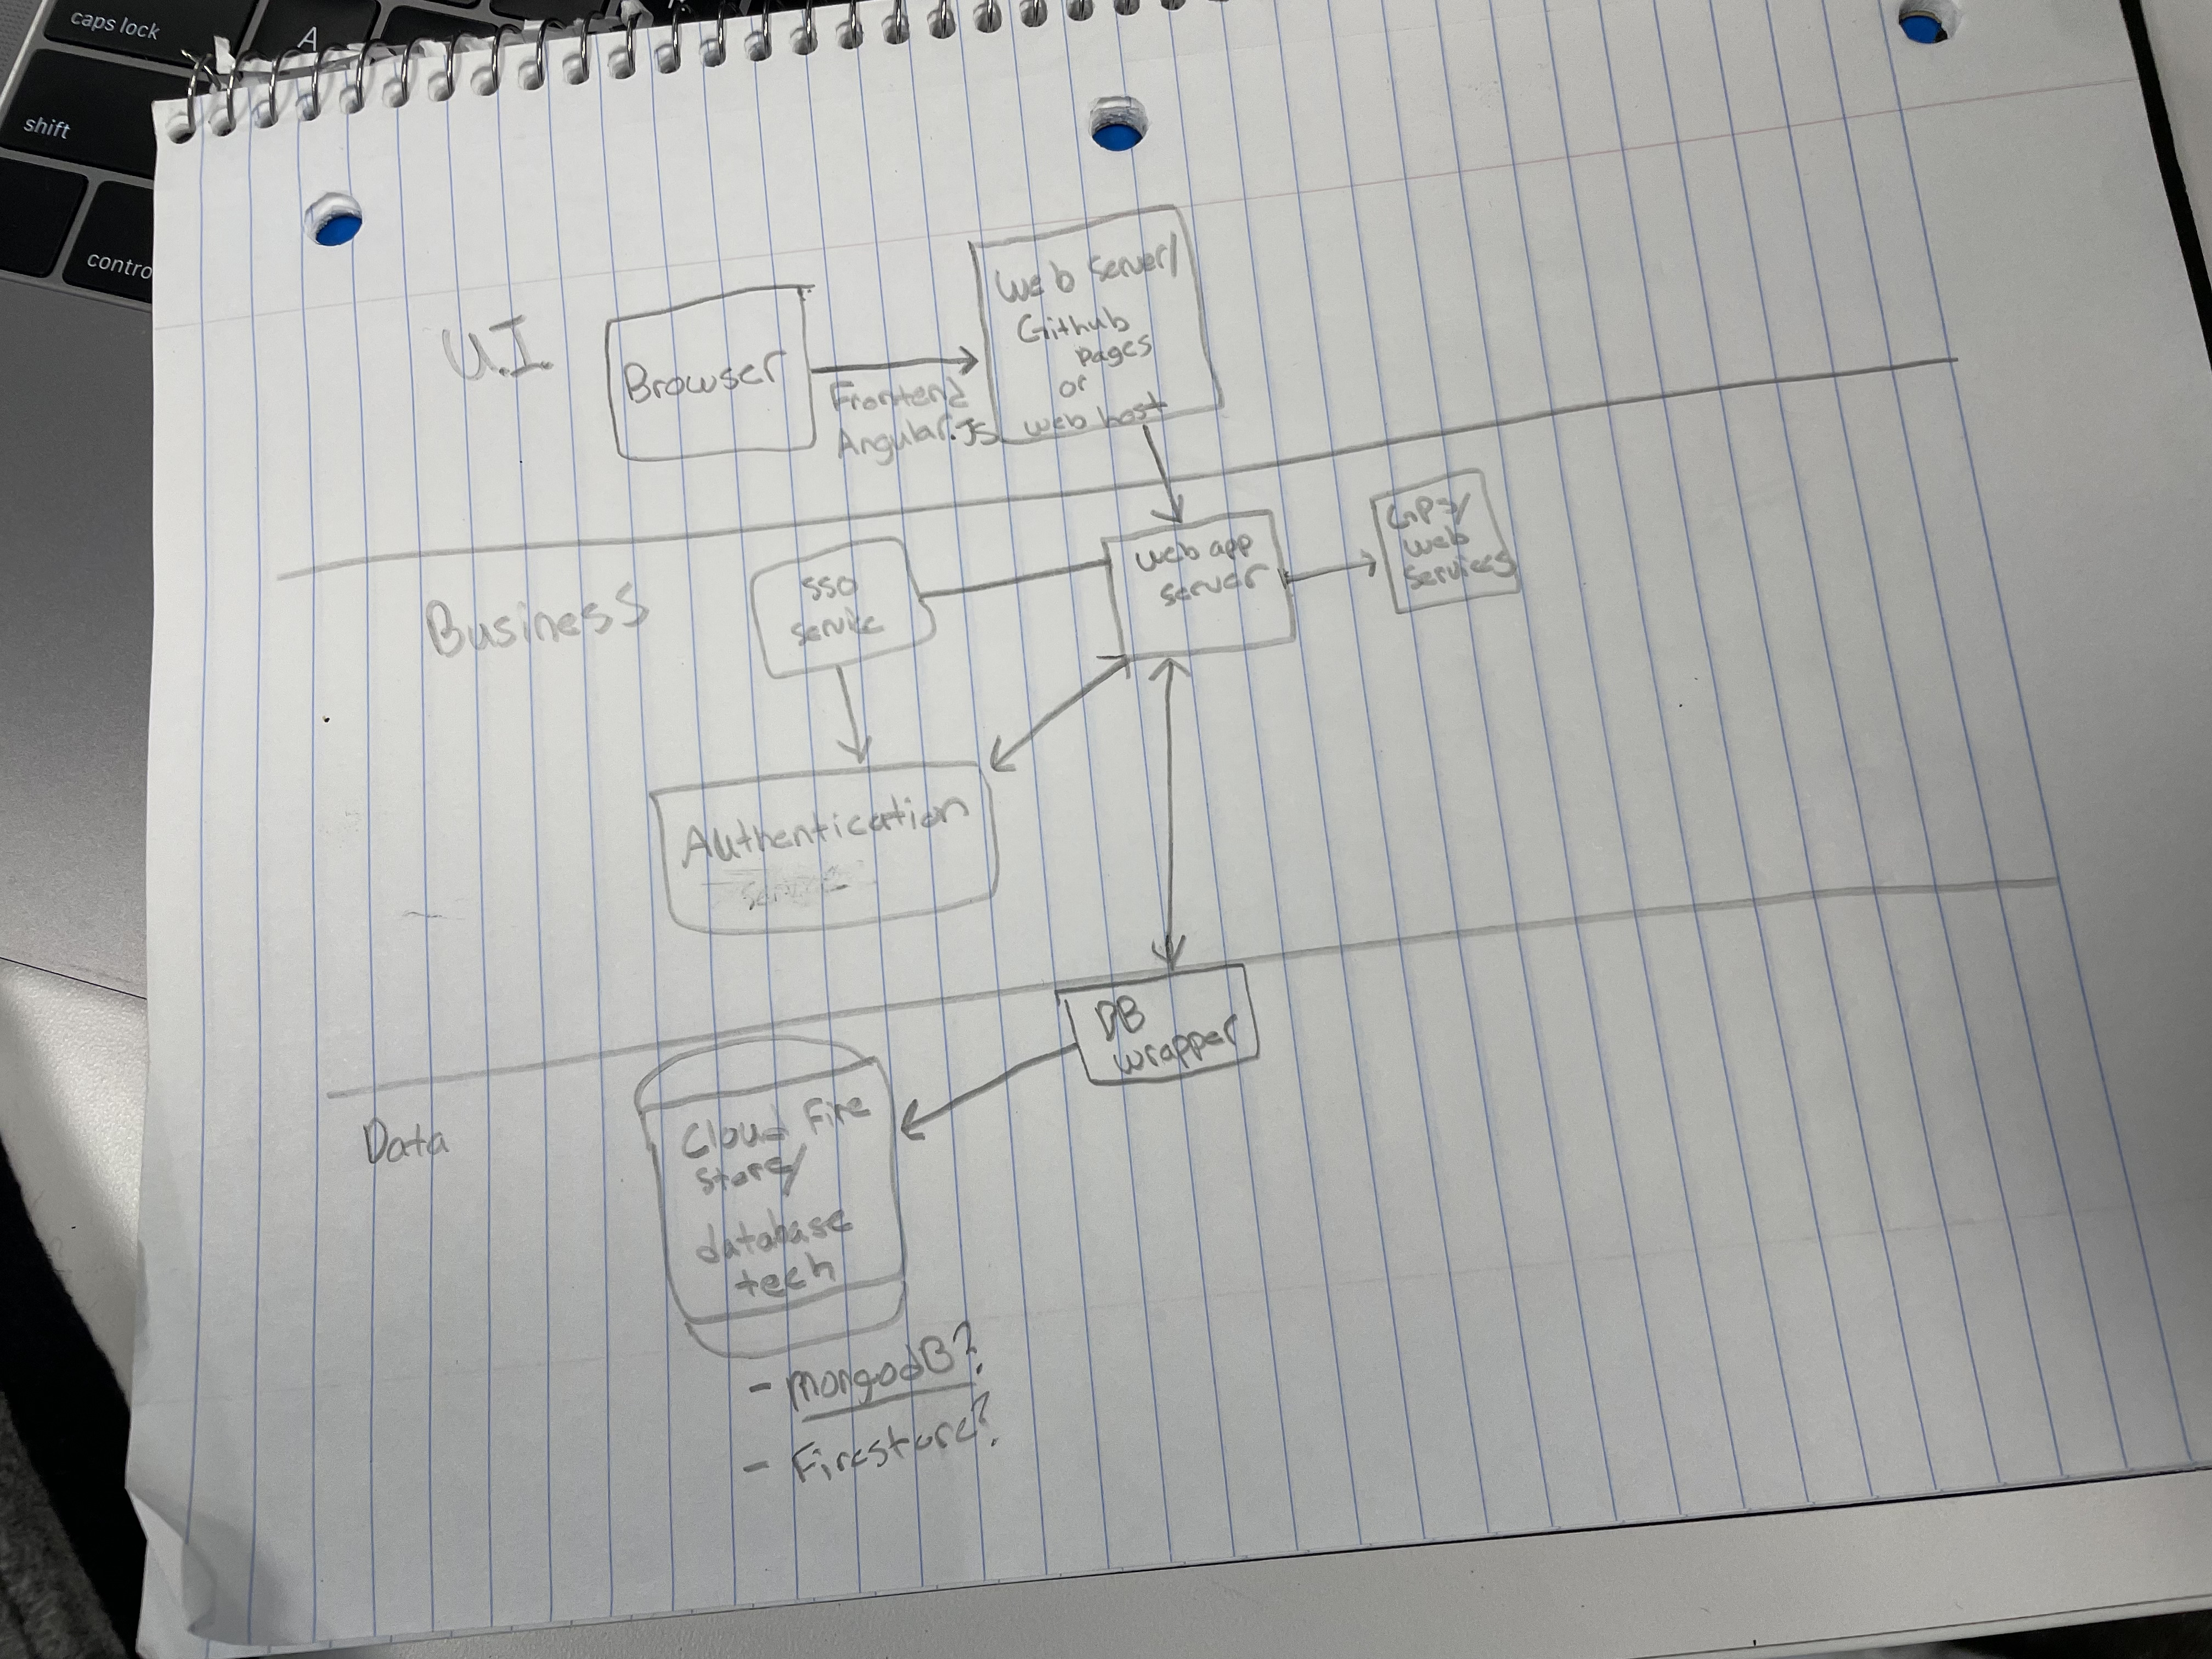 caps lock
A
shift
contro
U.I.
Browser
Frontend
Angular.JS
Web Server/
Github
pages
or
web host
Business
SSO
service
web app
server
web
services
Authentication
Service
Data
DB
wrapper
Cloud Fire
Store/
database
tech
- mongodB?
- Firestore?